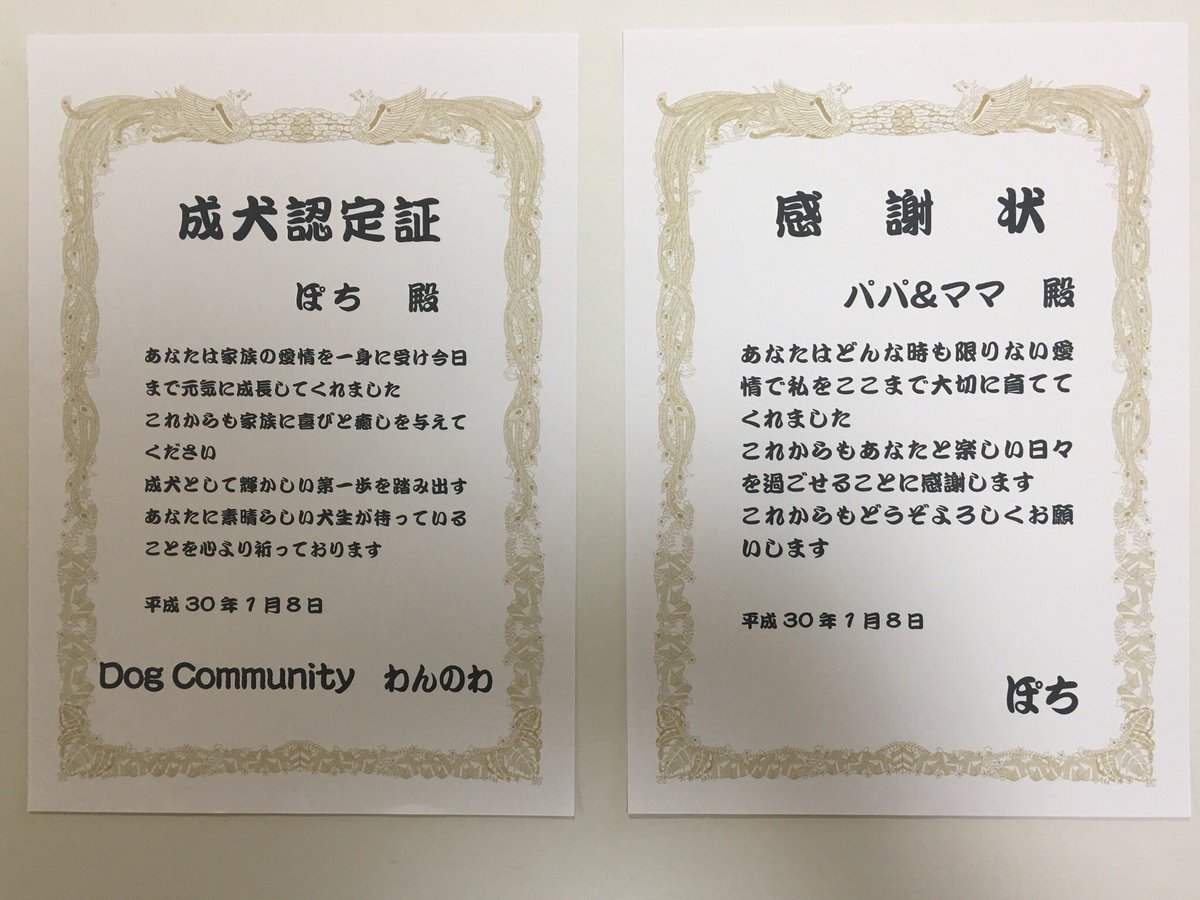 成犬認定証
ぽち 殿
あなたは家族の愛情を一身に受け今日
まで元気に成長してくれました
これからも家族に喜びと癒しを与えて
ください
成犬として輝かしい第一歩を踏み出す
あなたに素晴らしい犬生が待っている
ことを心より祈っております
平成30年1月8日
Dog Community わんのわ
感謝状
パパ&ママ 殿
あなたはどんな時も限りない愛
情で私をここまで大切に育てて
くれました
これからもあなたと楽しい日々
を過ごせることに感謝します
これからもどうぞよろしくお願
いします
平成30年1月8日
ぽち